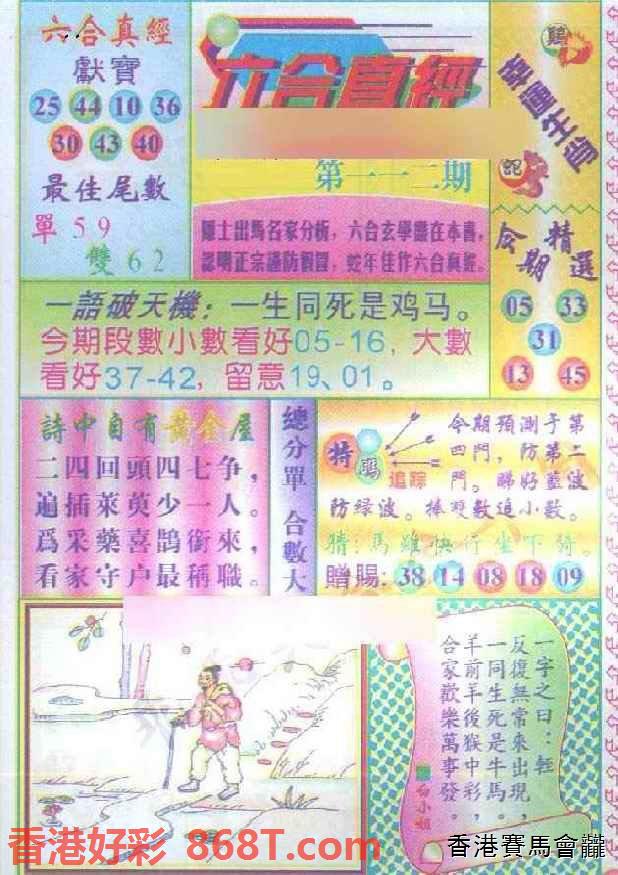 六合真經
獻寶
25 44 10 36
30 43 40
最佳尾數
單 5 9
雙 6 2
六合真經
第一一二期
隱士出馬名家分析，六合玄學盡在本書，
認明正宗謹防假冒，蛇年佳作六合真經。
鷄
幸運生肖
蛇
今期精選
05 33
31
13 45
一語破天機：一生同死是鸡马。
今期段數小數看好05-16，大數
看好37-42，留意19、01。
詩中自有黃金屋
二四回頭四七争，
遍插萊萸少一人。
爲采藥喜鵲銜來，
看家守户最稱職。
總分單 合數大
特碼
追踪
今期預測于第
四門，防第二
門。睇好藍波
防绿波。捧双数追小數。
猜：馬雖快行坐下騎。
贈賜：38 14 08 18 09
一字之曰：輕
反復無常來出現，
一同生死是牛馬。
羊前羊後猴中彩，
合家歡樂萬事發。
白小姐
香港好彩 868T.com
香港賽馬會